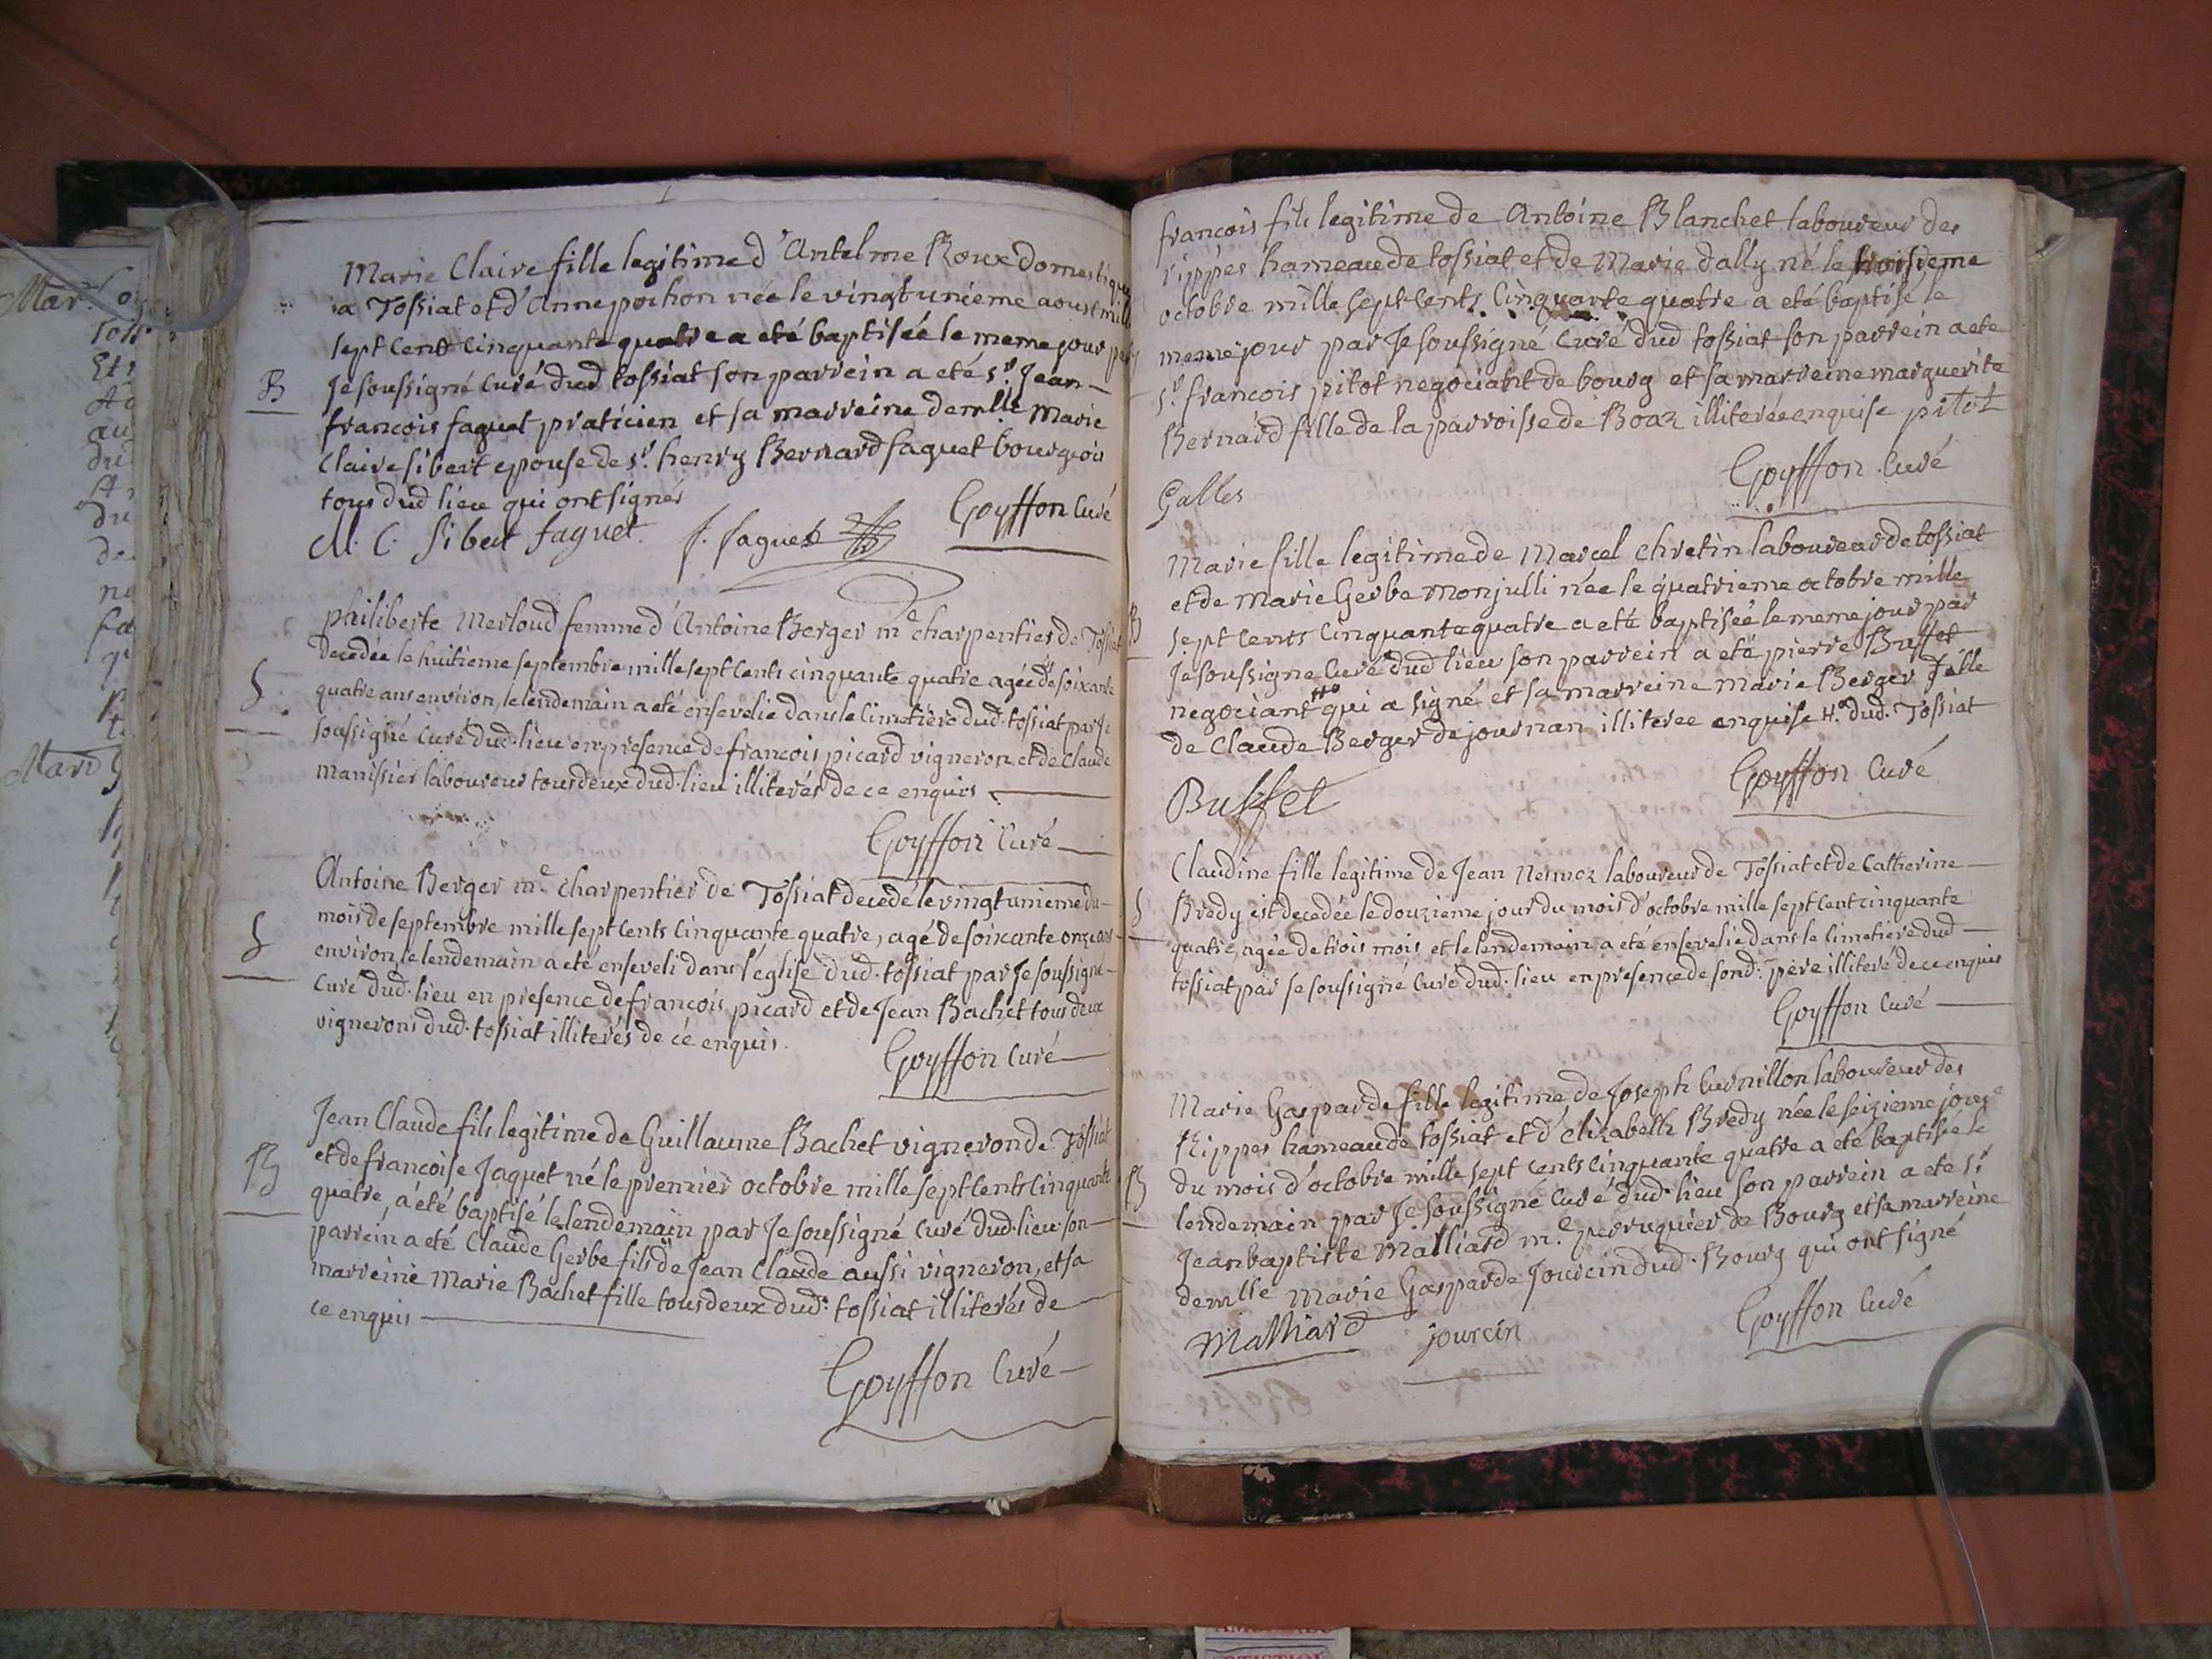 Marie Claire fille legitime d'Antelme Roux domestique
a Tossiat et d'Anne pochon née le vingt unieme aoust mille
sept cent cinquante quatre a eté baptisée le meme jour par
B
Je soussigné Curé dud tossiat son parrein a eté Sr. Jean
francois faguet praticien et sa marreine demlle Marie
Claire sibert epouse de Sr. henry Bernard faguet bourgeois
tous dud lieu qui ont signés
M. C. Sibert faguet. f. faguet Goyffon Curé
philiberte Merloud femme d'Antoine Berger me charpentier de Tossiat
decedée le huitieme septembre mille sept cents cinquante quatre agée de soixante
S
quatre ans environ, le lendemain a eté ensevelie dans le Cimetiere dud. tossiat par Je
soussigné Curé dud. lieu en presence de francois picard vigneron, et de Claude
manissier laboureur tous deux dud. lieu illiterés de ce enquis
Goyffon Curé
Antoine Berger me. charpentier de Tossiat decedé le vingt unieme du
mois de septembre mille sept cents cinquante quatre, agé de soixante onze ans
S
environ, le lendemain a eté enseveli dans l'église dud. tossiat par Je soussigné
Curé dud. lieu en presence de francois picard et de Jean Bachet tous deux
vignerons dud. tossiat illiterés de cé enquis.
Goyffon Curé
Jean Claude fils legitime de Guillaume Bachet vigneron de Tossiat
et de francoise Jaquet né le premier octobre mille sept cents cinquante
B
quatre, a été baptisé le lendemain par Je soussigné Curé dud. lieu son
parrein a eté Claude Gerbe fils de Jean Claude aussi vigneron, et sa
marreine Marie Bachet fille tous deux dud. tossiat illiterés de
ce enquis
Goyffon Curé
francois fils legitime de Antoine Blanchet laboureur des
rippes hameau de tossiat et de Marie dally né le troisieme
octobre mille sept cents Cinquante quatre a eté baptisé le
meme jour par Je soussigné Curé dud tossiat son parrein a ete
Sr. francois pitot negociant de bourg et sa marreine marguerite
Bernard fille de la parroisse de Boaz illiterée enquise pitot
Goyffon Curé
Galles
Marie fille legitime de Marcel Chretin laboureur de tossiat
et de Marie Gerbe monjulli née le quatrieme octobre mille
B
sept cents Cinquante quatre a eté baptisée le meme jour par
Je soussigne Curé dud lieu son parrein a eté pierre Buffet
negociant qui a signé et sa marreine Marie Berger fille
de Claude Berger de journan illiteree enquise dud. Tossiat
Buffet
Goyffon Curé
Claudine fille legitime de Jean Nesmoz laboureur de Tossiat et de Catherine
S
Bredy est decedée le douzieme jour du mois d'octobre mille sept cent cinquante
quatre, agée de trois mois et le lendemain a eté ensevelie dans le Cimetiere dud
tossiat par Je soussigné Curé dud. lieu en presence de sond. pere illiteré de ce enquis
Goyffon Curé
Marie Gasparde fille legitime de Joseph Curnillon laboureur des
Rippes hameau de tossiat et d'elizabeth Bredy née le seizieme jour
B
du mois d'octobre mille sept cents cinquante quatre a eté baptisée le
lendemain par Je soussigné Curé dud. lieu son parrein a ete Sr
Jean baptiste Malliard me. perruquier de Bourg et sa marreine
demlle Marie Gasparde Jourcin dud. Bourg qui ont signé
Malliard jourcin
Goyffon Curé